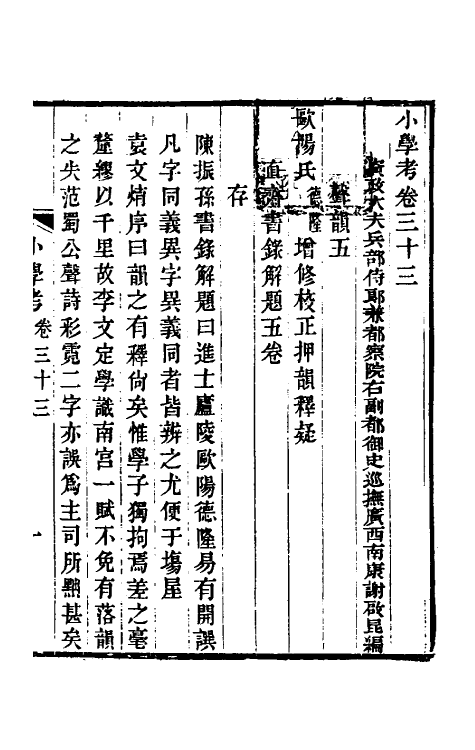 小學考卷三十三
資政大夫兵部侍郎兼都察院右副都御史巡撫廣西南康謝啟昆編
聲韻五
歐陽氏德隆增修校正押韻釋疑
直齋書錄解題五卷
存
陳振孫書錄解題曰進士廬陵歐陽德隆易有開譔
凡字同義異字異義同者皆辨之尤便于塲屋
袁文焴序曰韻之有釋尙矣惟學子獨拘焉差之毫
釐繆以千里故李文定學識南宮一賦不免有落韻
之失范蜀公聲詩彩霓二字亦誤爲主司所黜甚矣
小學考 卷三十三 一